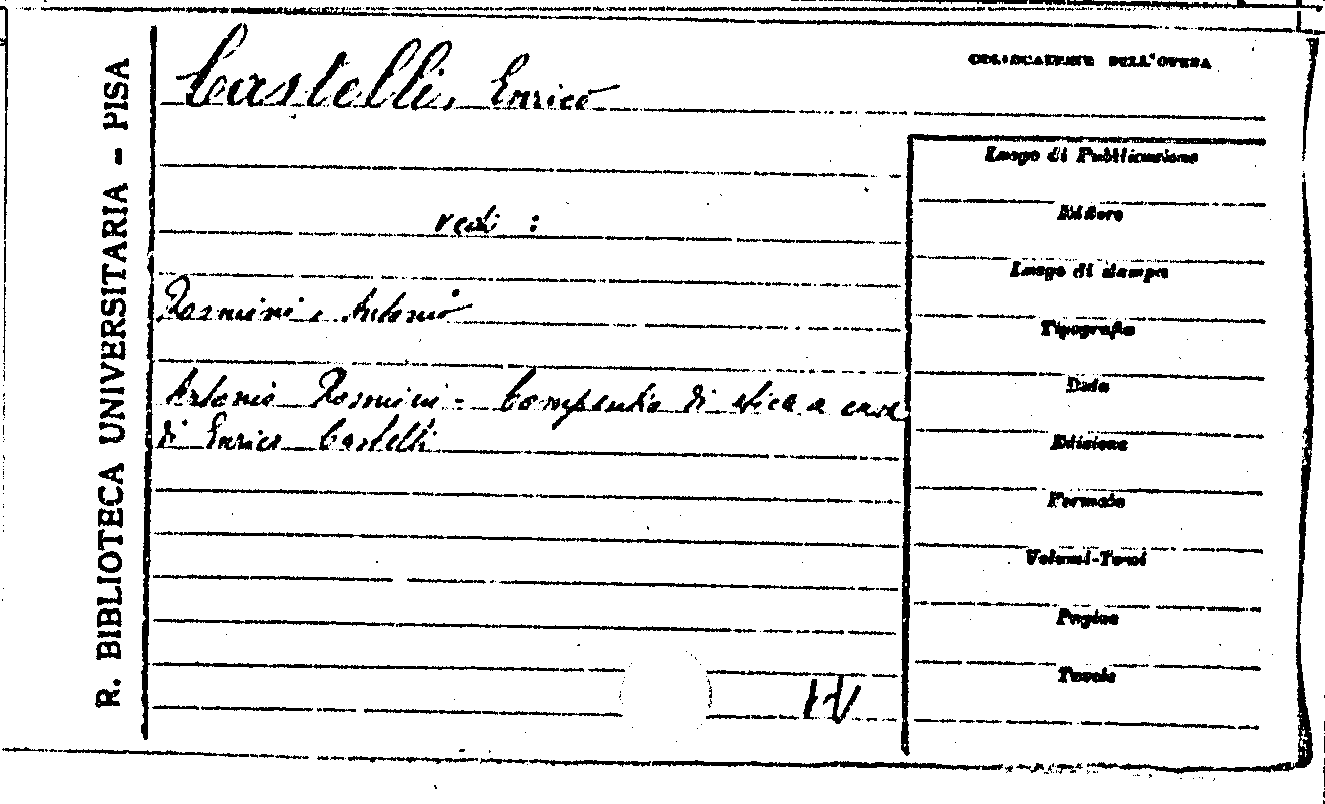 R. BIBLIOTECA UNIVERSITARIA - PISA
COLLOCAZIONE DELL'OPERA
Castelli, Enrico
vedi :
Rosmini, Antonio
Antonio Rosmini - Compendio di etica a cura
di Enrico Castelli
Luogo di Pubblicazione
Editore
Luogo di stampa
Tipografia
Data
Edizione
Formato
Volumi-Tomi
Pagine
Tavole